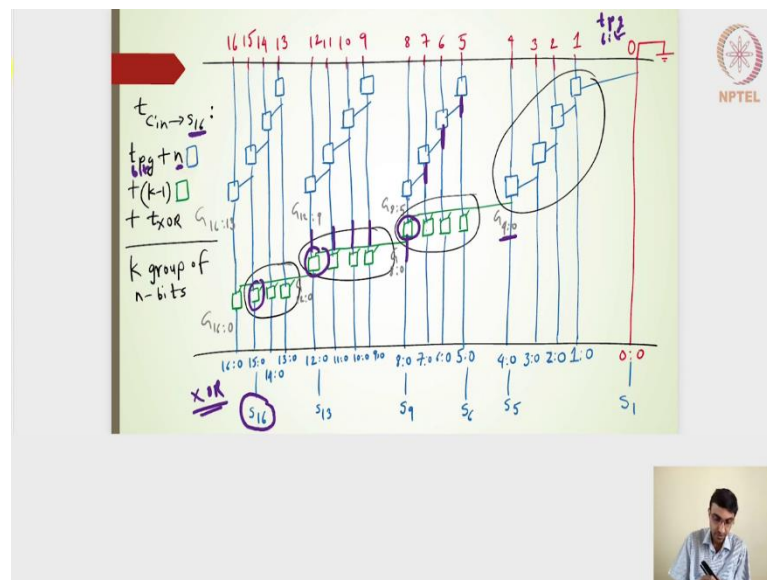 tpg
bit
16 15 14 13 12 11 10 9 8 7 6 5 4 3 2 1 0
NPTEL
t Cin→S16 :
tpg + n
bit
+(k-1)
+ tXOR
K group of
n-bits
G16:13
G12:9
G8:5
G4:0
G8:0
G12:0
G16:0
16:0 15:0 14:0 13:0 12:0 11:0 10:0 9:0 8:0 7:0 6:0 5:0 4:0 3:0 2:0 1:0 0:0
XOR
S16 S13 S9 S6 S5 S1